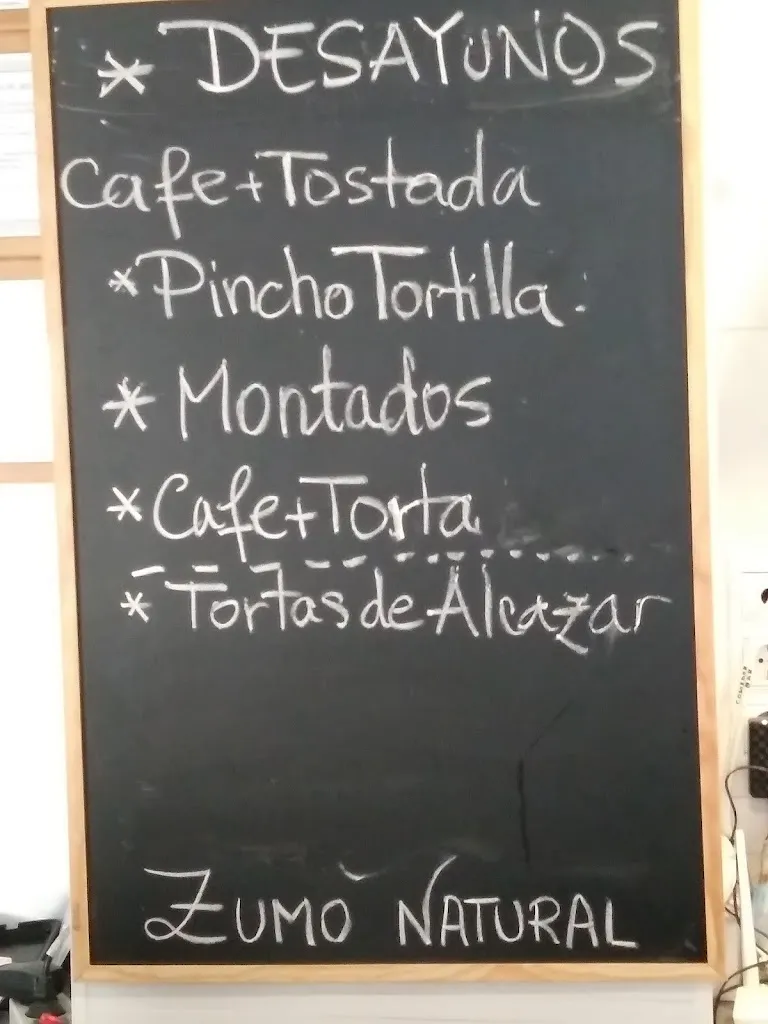 * DESAYUNOS
Cafe+Tostada
* Pincho Tortilla.
* Montados
* Cafe+Torta
* Tortas de Alcazar
ZUMO NATURAL